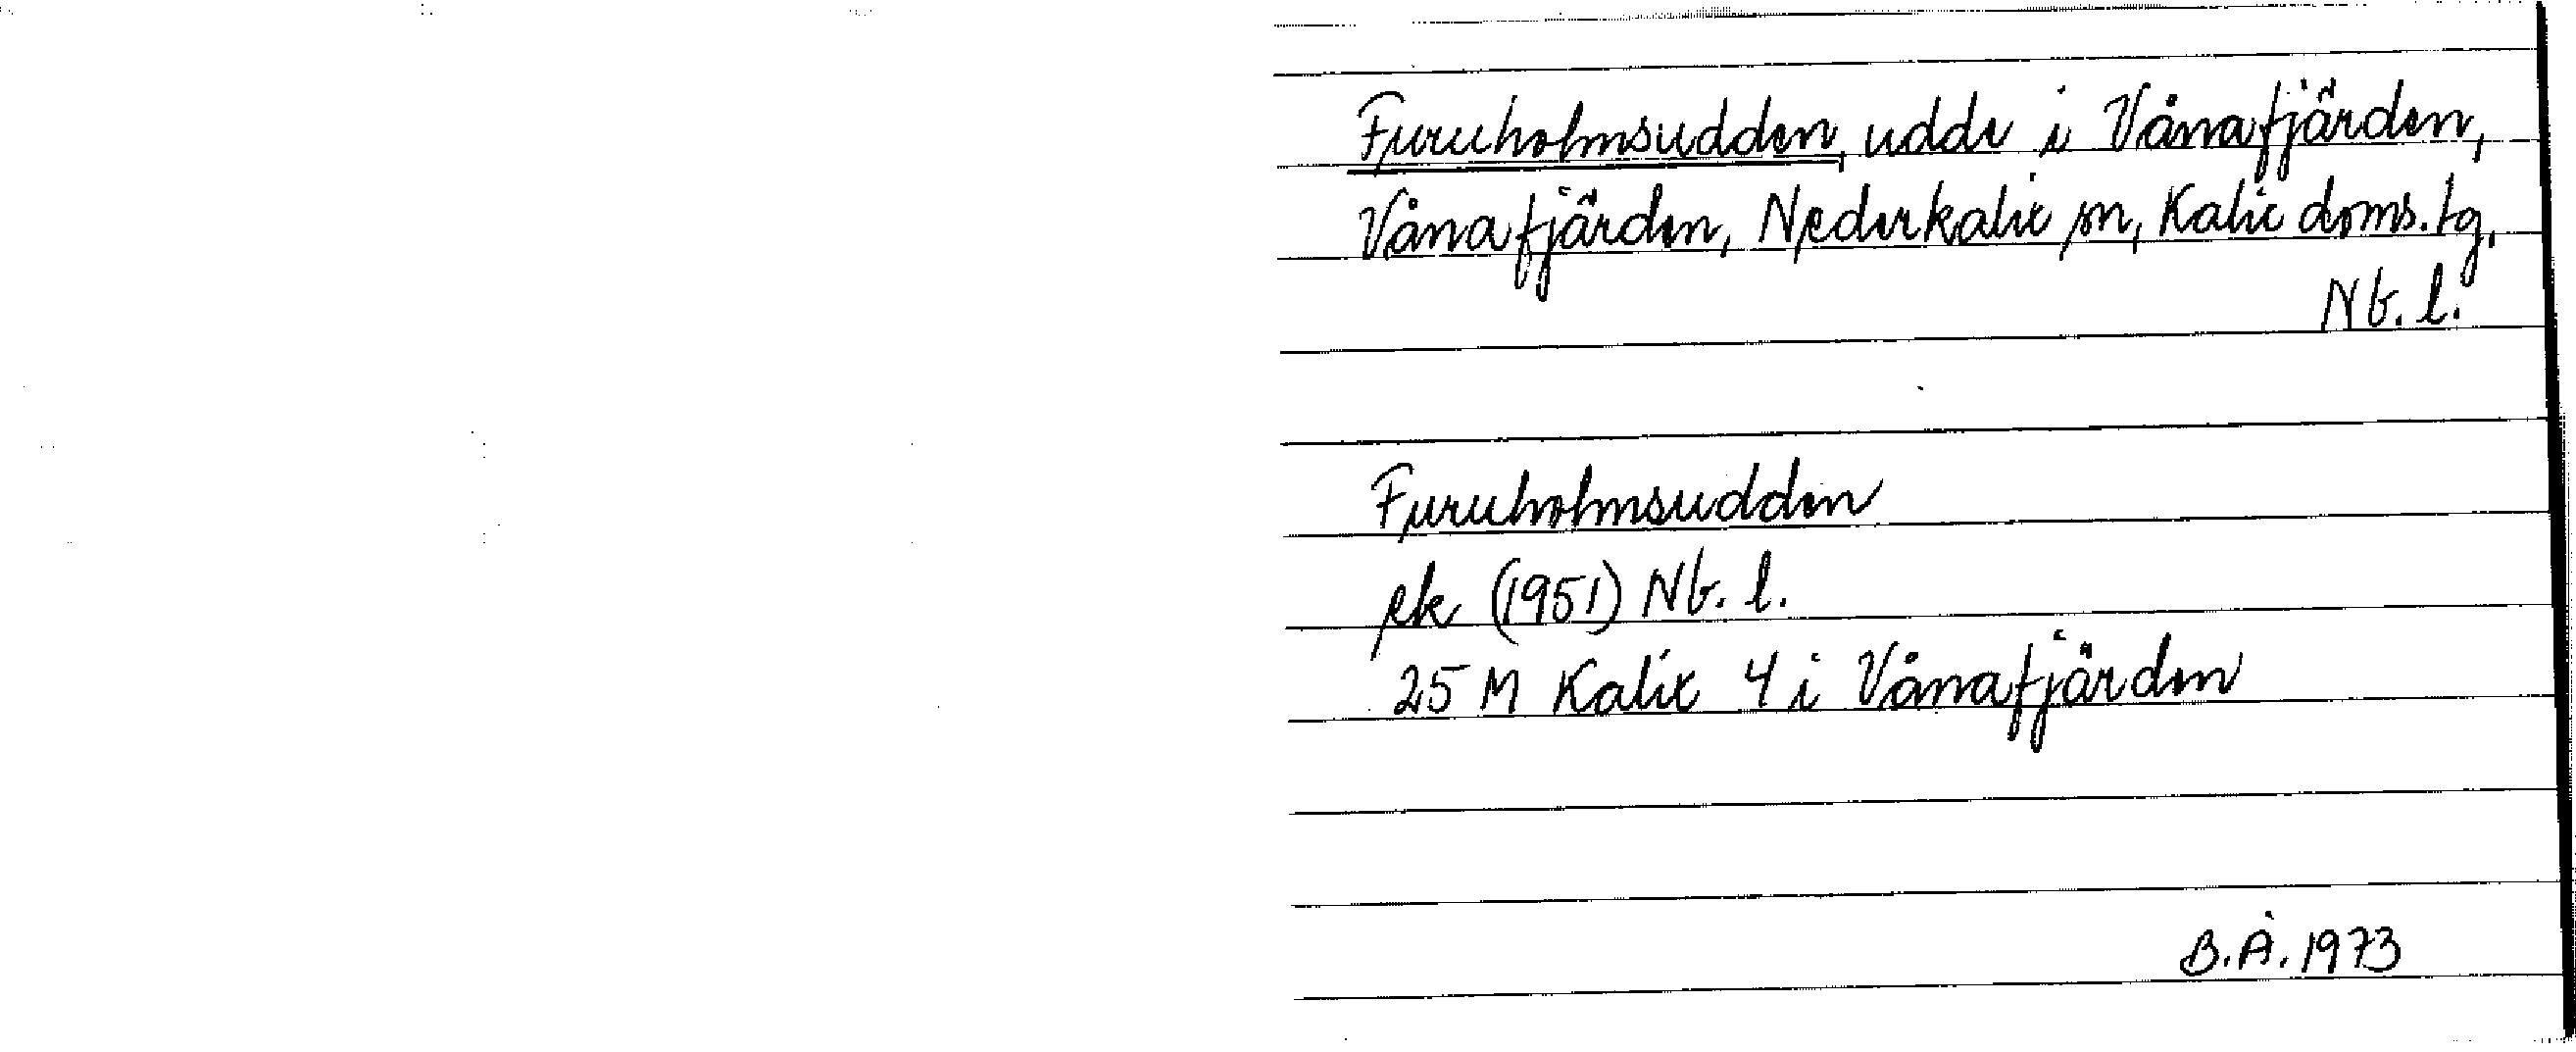 Furuholmsudden, udde i Vånafjärden,
Vånafjärden, Nederkalix sn, Kalix doms. tg,
Nb. l.
Furuholmsudden
ek (1951) Nb. l.
25 M Kalix 4 i Vånafjärden
B.Å. 1973